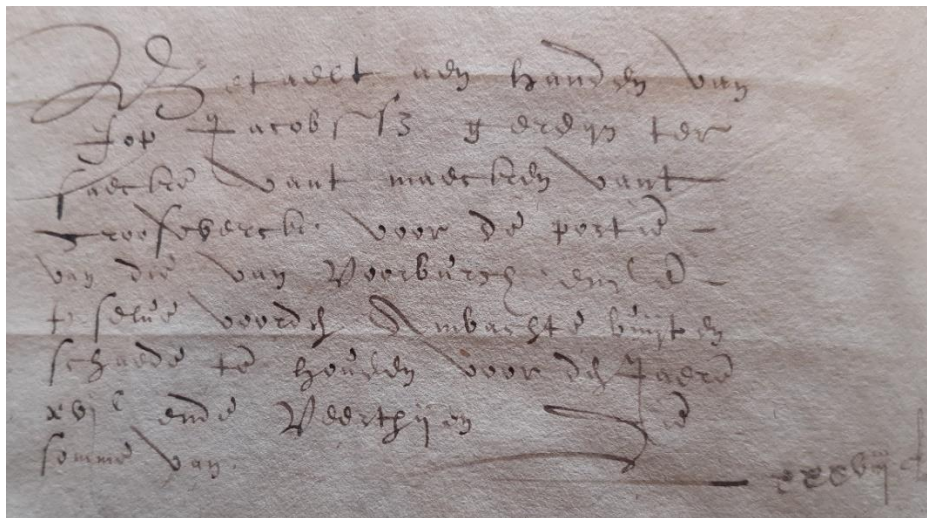 Betaelt aen handen van
Jop Jacobssz gereijn ter
saecke vant maecken vant
voor de portie
van die van Voorburch ende
tselve voorch Ambachte buijten
schaede te houden voor den Jaere
xvjc ende Veerthijen die
somme van
xxxvij £